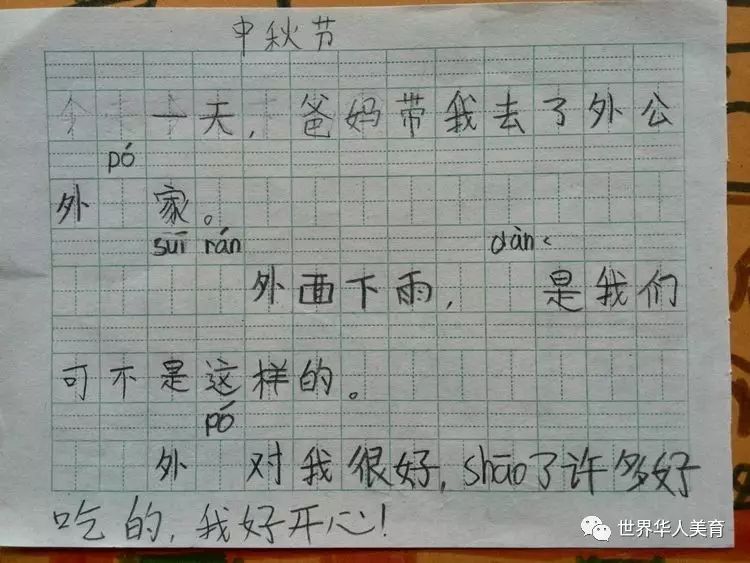 中秋节
一天，爸妈带我去了外公
pó
外 家。
suī rán dàn
外面下雨， 是我们
可不是这样的。
pó
外 对我很好，shāo了许多好
吃的，我好开心！
世界华人美育